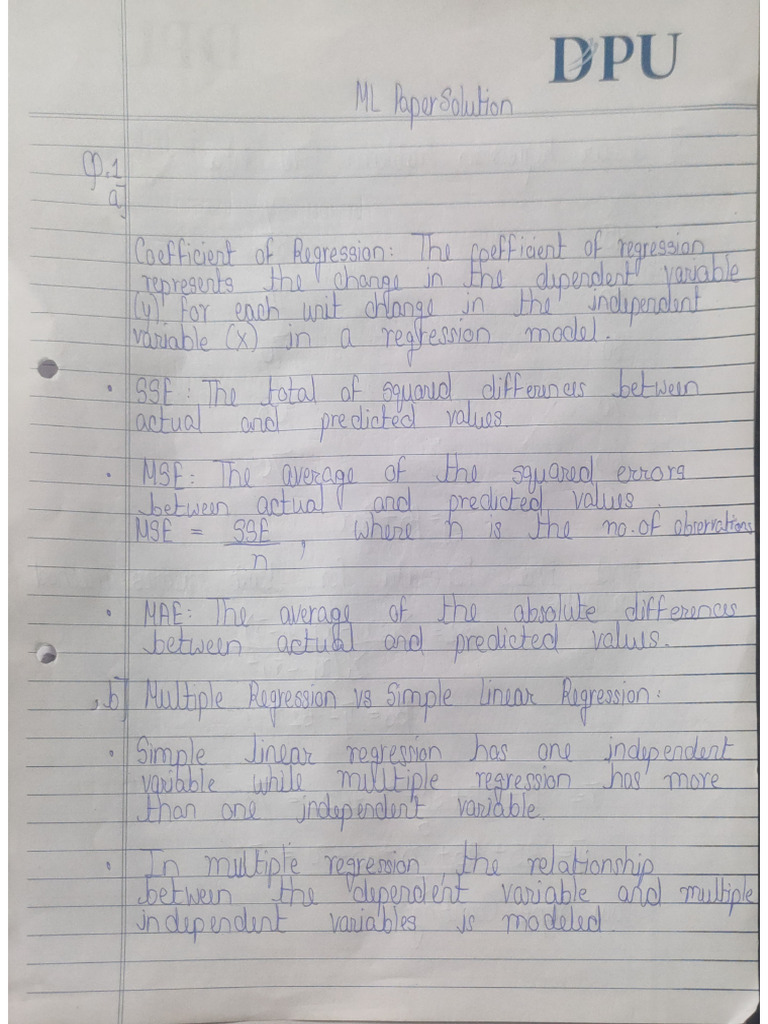 DPU
ML Paper Solution
Q.1
a]
Coefficient of Regression: The coefficient of regression
represents the change in the dependent variable
(y) for each unit change in the independent
variable (x) in a regression model.
• SSE: The total of squared differences between
actual and predicted values.
• MSE: The average of the squared errors
between actual and predicted values.
MSE = SSE
n , where n is the no. of observations
• MAE: The average of the absolute differences
between actual and predicted values.
b] Multiple Regression vs Simple linear Regression:
• Simple linear regression has one independent
variable while multiple regression has more
than one independent variable.
• In multiple regression, the relationship
between the dependent variable and multiple
independent variables is modeled